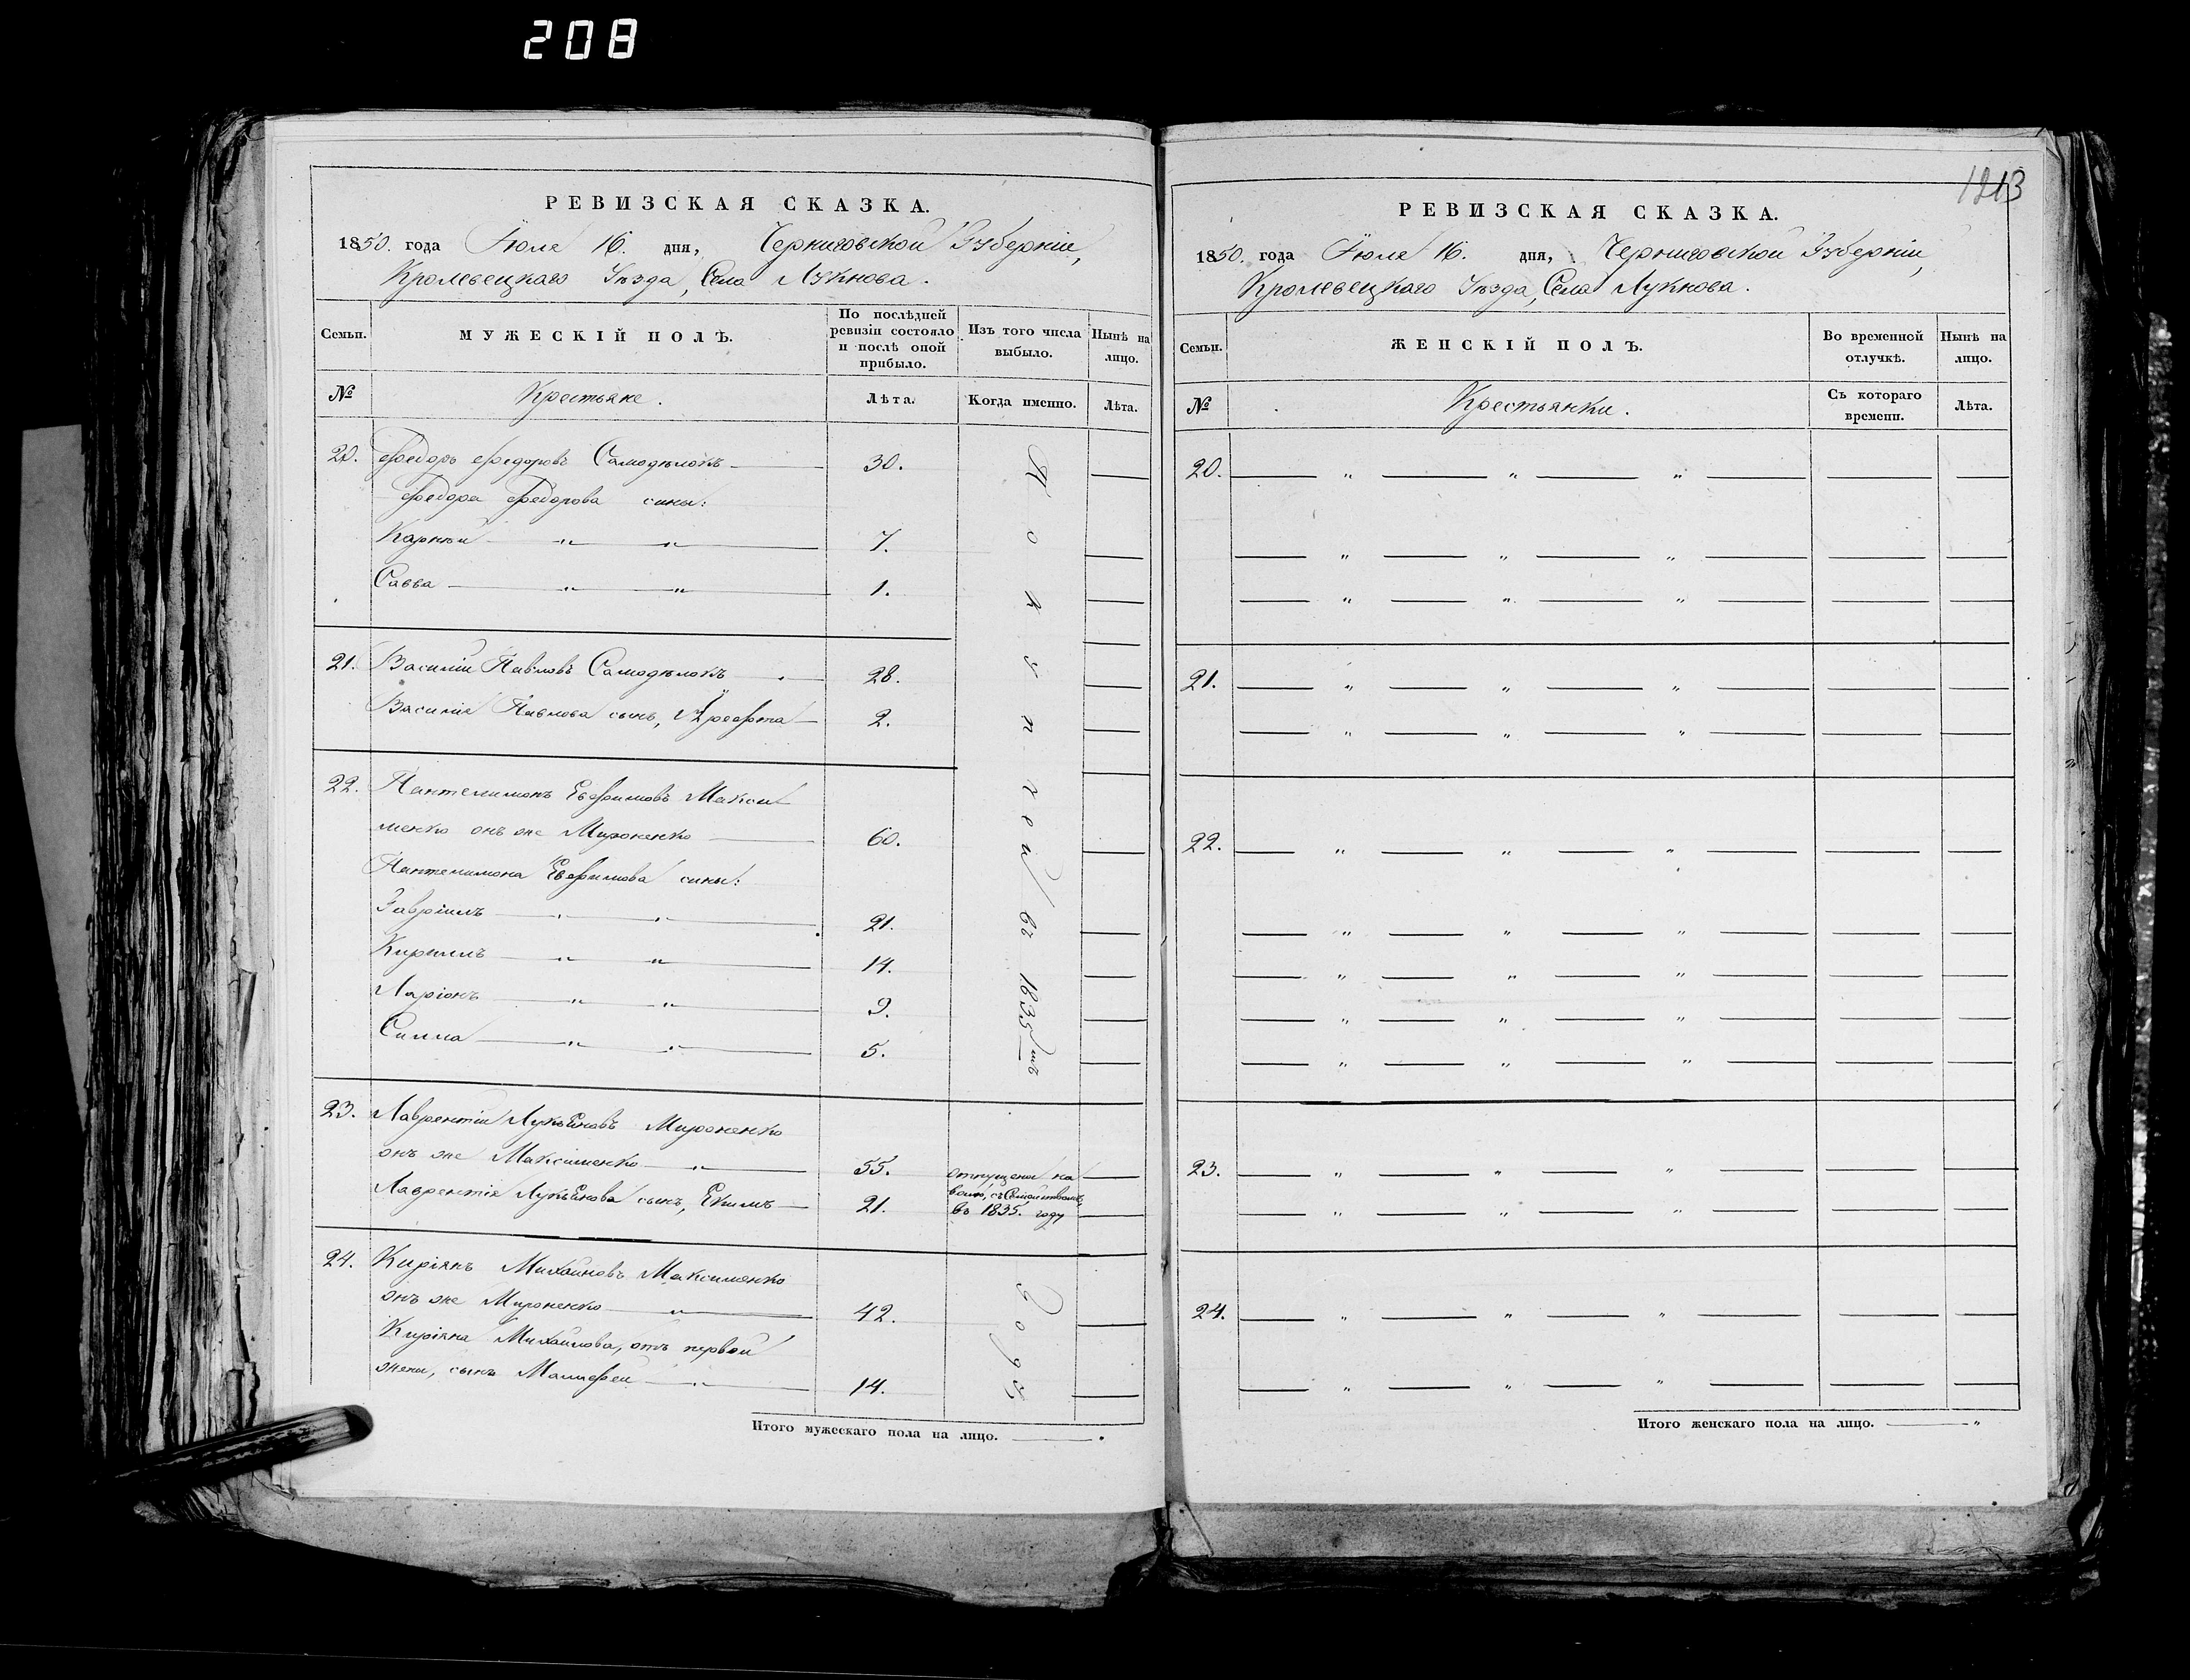 208
РЕВИЗСКАЯ СКАЗКА.
1850. года Іюля 16. дня, Черниговской Губерніи,
Кролевецкаго Уѣзда, Села Лукнова.
Семьи.
МУЖЕСКІЙ ПОЛЪ.
По послѣдней ревизіи состояло и послѣ оной прибыло.
Изъ того числа выбыло.
Нынѣ на лицо.
№
Крестьяне.
Лѣта.
Когда именно.
Лѣта.
20. Федоръ Федоровъ Самодѣлокъ — 30.
Федора Федорова сины:
Карнѣй — „ — „ — 7.
Савва — „ — „ — 1.
21. Василій Павловъ Самодѣлокъ — 28.
Василія Павлова сынъ, Ареѳта — 2.
22. Пантелимонъ Евфимовъ Макси
менко онъ же Мироненко — 60.
Пантелимона Евфимова сины:
Гавріилъ — „ — „ — 21.
Кириллъ — „ — „ — 14.
Ларіонъ — „ — „ — 9.
Силла — „ — „ — 5.
въ 1835мъ
23. Лаврентій Лукьяновъ Мироненко
онъ же Максименко — „ — 55.
Лаврентія Лукьянова сынъ, Екимъ — 21.
отпущени на
волю, съ Семействомъ,
въ 1835. году
24. Киріянъ Михайловъ Максименко
онъ же Мироненко — „ — 42.
Киріяна Михайлова, отъ первой
жени, сынъ Малофей — „ — 14.
Году
Итого мужескаго пола на лицо. —
1213
РЕВИЗСКАЯ СКАЗКА.
1850. года Іюля 16. дня, Черниговской Губерніи,
Кролевецкаго Уѣзда, Села Лукнова.
Семьи.
ЖЕНСКІЙ ПОЛЪ.
Во временной отлучкѣ.
Нынѣ на лицо.
№
Крестьянки.
Съ котораго времени.
Лѣта.
20. — „ — „ — „ —
— „ — „ — „ —
— „ — „ — „ —
21. — „ — „ — „ —
— „ — „ — „ —
22. — „ — „ — „ —
— „ — „ — „ —
— „ — „ — „ —
— „ — „ — „ —
— „ — „ — „ —
23. — „ — „ — „ —
— „ — „ — „ —
24. — „ — „ — „ —
— „ — „ — „ —
Итого женскаго пола на лицо. — „